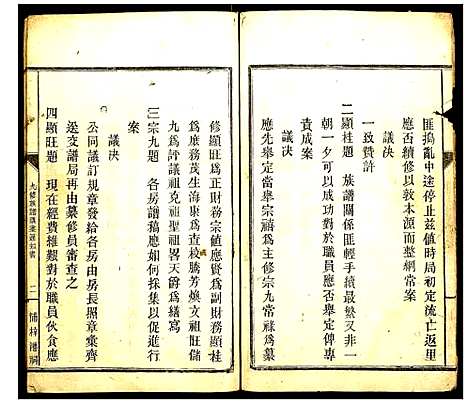 匪搗亂中途停止茲値時局初定流亡返里
應否續修以敦木源而整綱常案
議決
一致贊許
二顯桂題 族譜關係匪輕手續最繁難非一
朝一夕可以成功對於職員應否舉定俾專
責成案
議決
應先舉定當舉宗禧為主修宗九常祿為纂
修顯旺為正財務宗値應賢為副財務顯桂
為庶務茂生海泉為查校騰芳煥文祖旺儲
九為評議祖克祖聖祖畧天爵為繕寫
三宗九題 各房譜稿應如何採集以促進行
案
議決
公同議訂規章發給各房由房長照章彙齊
送交譜局再由纂修員審查之
四顯旺題 現在經費維艱對於職員伙食應
九修族譜議案通知書
二